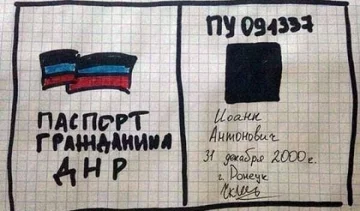 ПАСПОРТ
ГРАЖДАНИНА
ДНР
ПУ 091337
Иоанн
Антонович
31 декабря 2000 г.
г. Донецк